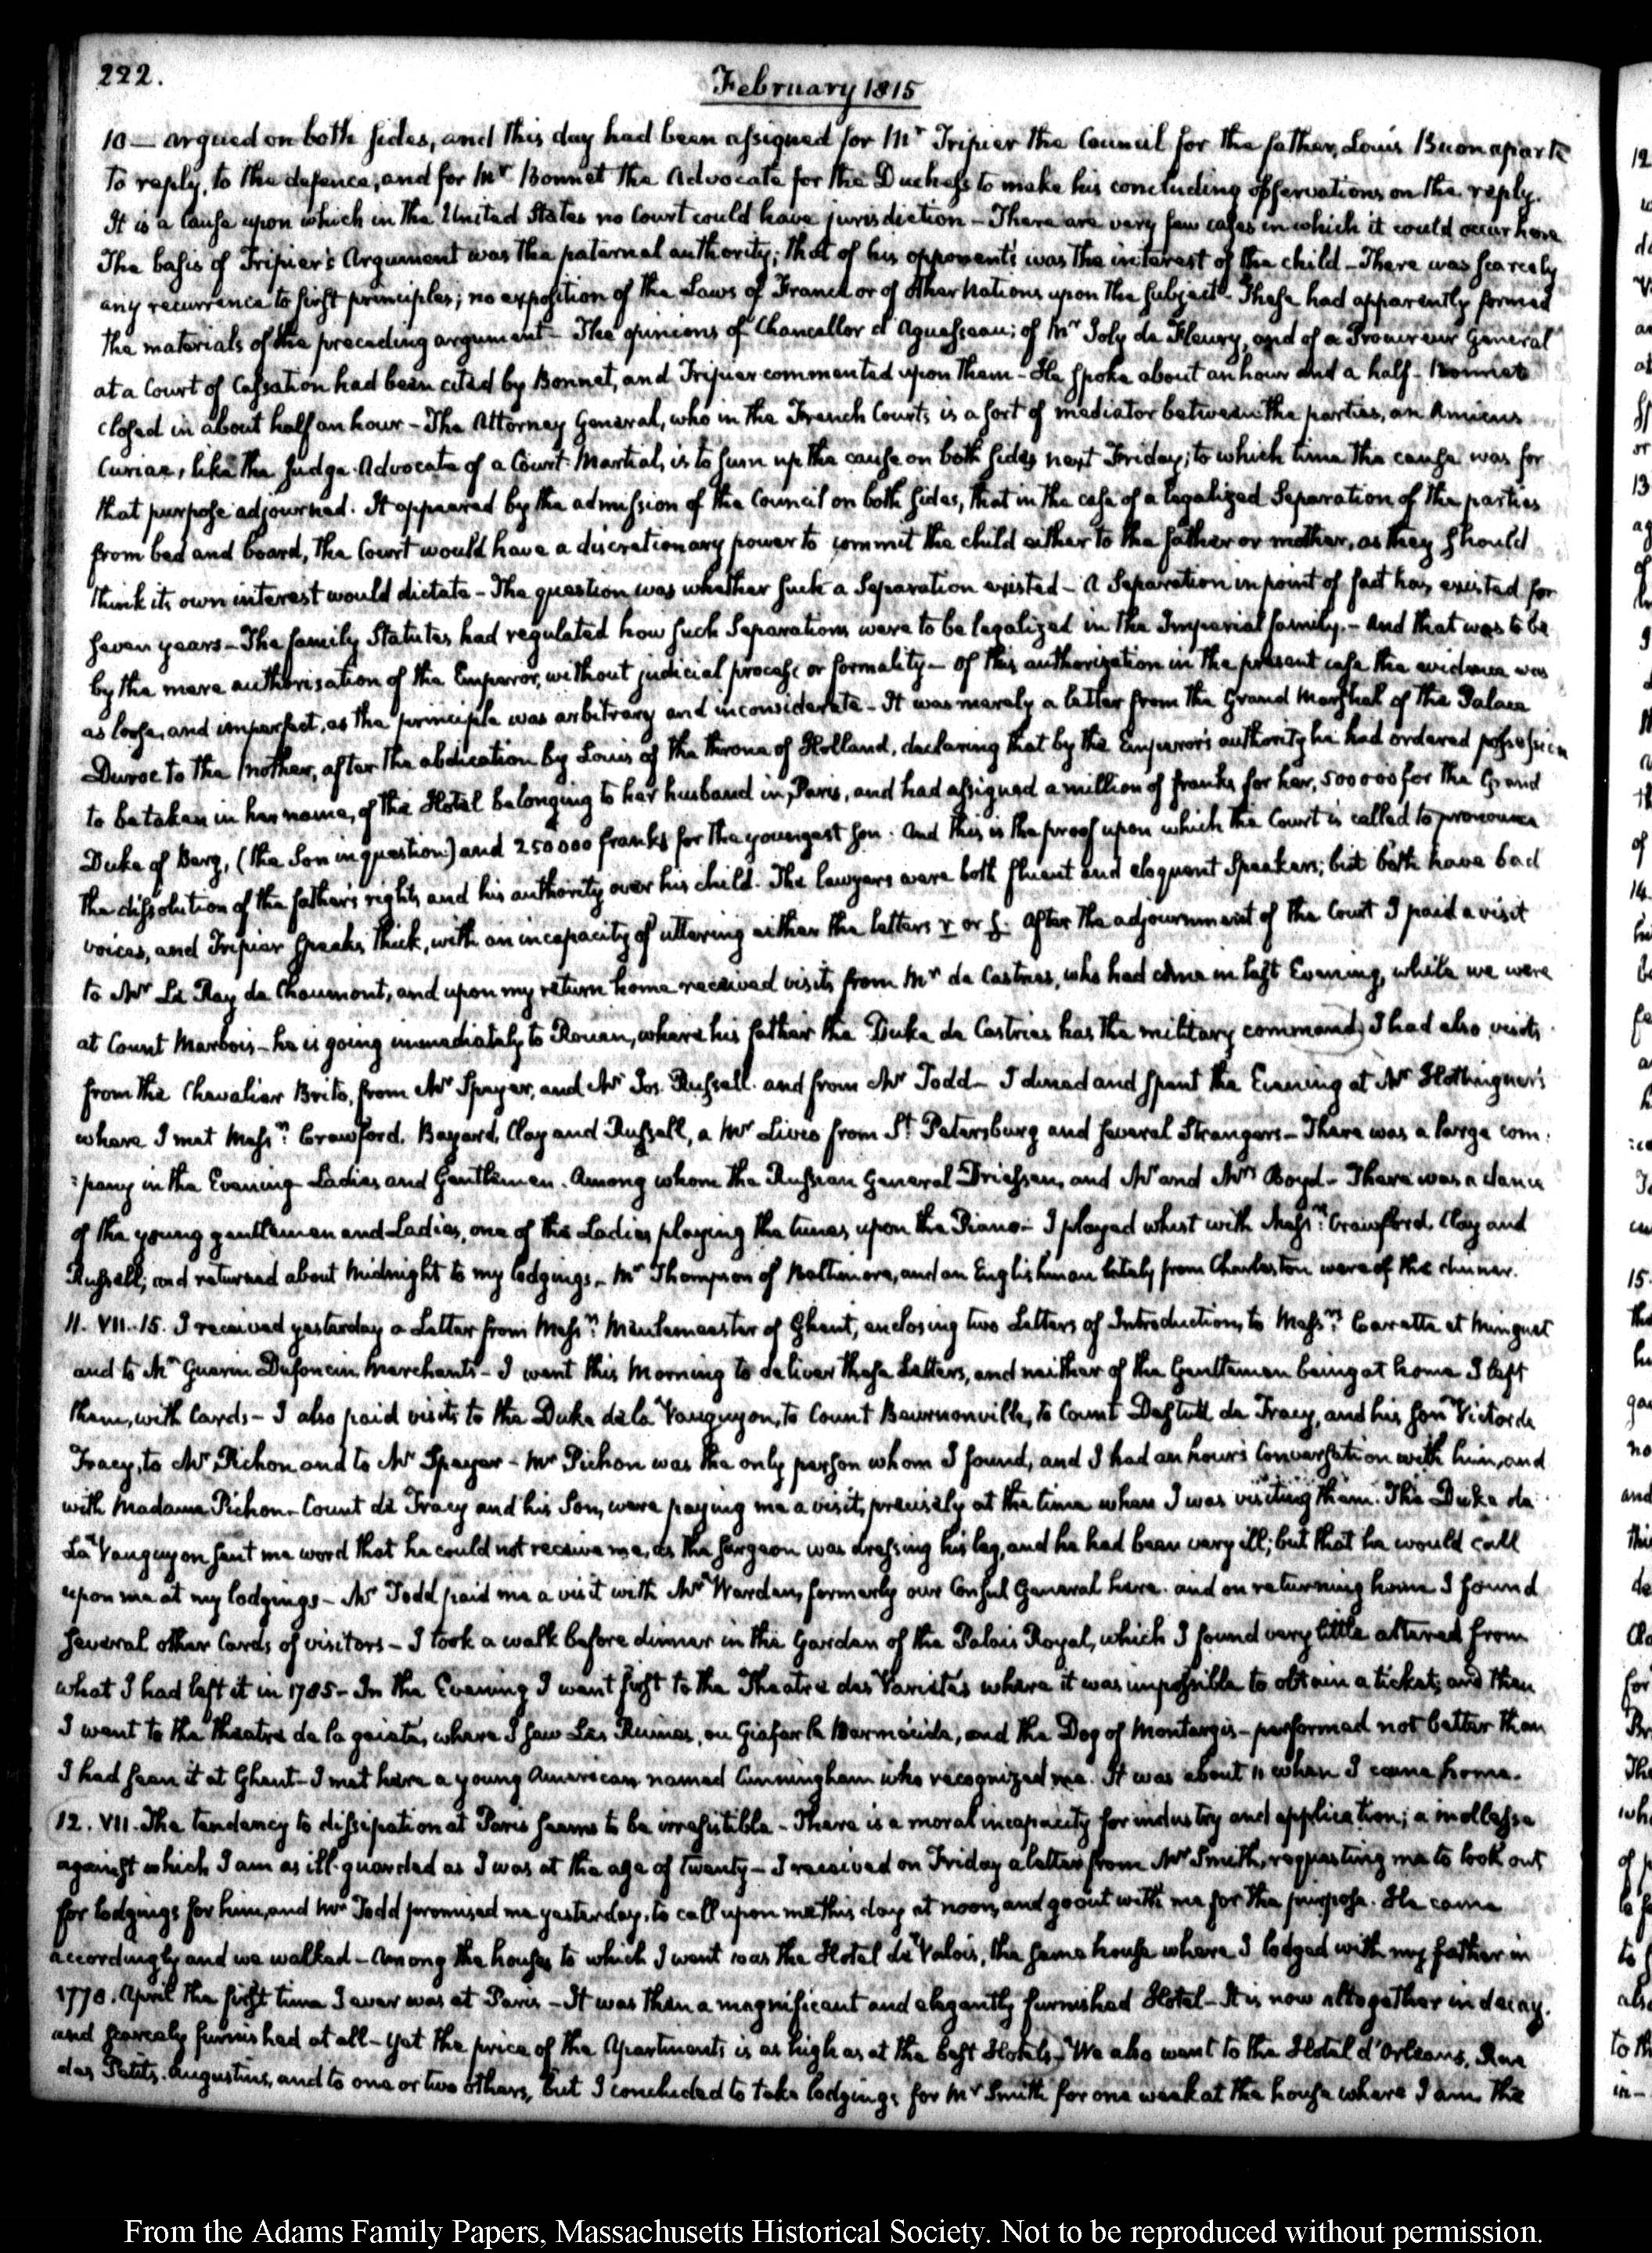 222.
February 1815
10 — argued on both sides, and this day had been assigned for Mr Tripier the Council for the father, Louis Buonaparte
to reply, to the defence, and for Mr Bonnet the Advocate for the Duchess to make his concluding observations on the reply.
It is a Cause upon which in the United States no Court could have jurisdiction - There are very few cases in which it could occur here
The basis of Tripier's Argument was the paternal authority; that of his opponents was the interest of the child - There was scarcely
any recurrence to first principles; no exposition of the Laws of France or of other Nations upon the subject - These had apparently formed
the materials of the preceding argument - The opinions of Chancellor d'Aguesseau; of Mr Joly de Fleury, and of a Procureur General
at a Court of Cassation had been cited by Bonnet, and Tripier commented upon them - He spoke about an hour and a half - Bonnet
closed in about half an hour - The Attorney General, who in the French Courts is a sort of mediator between the parties, an Amicus
Curiae, like the Judge-Advocate of a Court-Martial, is to sum up the cause on both sides next Friday; to which time the cause was for
that purpose adjourned. It appeared by the admission of the Council on both sides, that in the case of a legalized Separation of the parties
from bed and board, the Court would have a discretionary power to commit the child either to the father or mother, as they should
think its own interest would dictate - The question was whether such a Separation existed - A Separation in point of fact has existed for
seven years - The family Statutes had regulated how such Separations were to be legalized in the Imperial family - And that was to be
by the mere authorisation of the Emperor, without judicial process or formality - of this authorization in the present case the evidence was
as loose, and imperfect, as the principle was arbitrary and inconsiderate - It was merely a letter from the Grand Marshal of the Palace
Duroc to the mother, after the abdication by Louis of the throne of Holland, declaring that by the Emperor's authority he had ordered possession
to be taken in her name, of the Hotel belonging to her husband in Paris, and had assigned a million of franks for her, 500000 for the Grand
Duke of Berg, (the Son in question) and 250000 franks for the youngest son. And this is the proof upon which the Court is called to pronounce
the dissolution of the father's rights and his authority over his child. The lawyers were both fluent and eloquent Speakers; but both have bad
voices, and Tripier speaks thick, with an incapacity of uttering either the letters r or s. After the adjournment of the Court I paid a visit
to Mr Le Ray de Chaumont, and upon my return home received visits from Mr de Castries, who had come in last Evening, while we were
at Count Marbois - he is going immediately to Rouen, where his father the Duke de Castries has the military command; I had also visits
from the Chevalier Brito, from Mr Speyer, and Mr Jos. Russell. and from Mr Todd - I dined and spent the Evening at Mr Hottinguer's
where I met Messrs Crawford. Bayard, Clay and Russell, a Mr Livio from St Petersburg and several Strangers - There was a large com:
:pany in the Evening Ladies and Gentlemen. Among whom the Russian General Driessen, and Mr and Mrs Boyd - There was a dance
of the young gentlemen and Ladies, one of the Ladies playing the tunes upon the Piano - I played whist with Messrs Crawford, Clay and
Russell; and returned about Midnight to my lodgings. Mr Thompson of Baltimore, and an Englishman lately from Charleston were of the dinner.
11. VII.15. I received yesterday a Letter from Messrs Meulemeester of Ghent, enclosing two Letters of Introduction, to Messrs Caratte et Minguet
and to Mr Guerin Dufoncin Merchants - I went this Morning to deliver these Letters, and neither of the Gentlemen being at home I left
them, with Cards - I also paid visits to the Duke de la Vauguyon, to Count Beurnonville, to Count Destutt de Tracy, and his son Victor de
Tracy, to Mr Pichon and to Mr Speyer - Mr Pichon was the only person whom I found, and I had an hour's conversation with him, and
with Madame Pichon - Count de Tracy and his Son, were paying me a visit, precisely at the time when I was visiting them. The Duke de
La Vauguyon sent me word that he could not receive me, as the surgeon was dressing his leg, and he had been very ill; but that he would call
upon me at my lodgings - Mr Todd paid me a visit with Mr Warden, formerly our Consul General here. and on returning home I found
several other Cards of visitors - I took a walk before dinner in the Garden of the Palais Royal, which I found very little altered from
what I had left it in 1785 - In the Evening I went first to the Theatre des Varietés where it was impossible to obtain a ticket; and then
I went to the theatre de la gaieté, where I saw Les Ruines, ou Giafar le Barmécide, and the Dog of Montargis - performed not better than
I had seen it at Ghent - I met here a young American named Cunningham who recognized me. It was about 11 when I came home.
12. VII. The tendency to dissipation at Paris seems to be irresistible - There is a moral incapacity for industry and application; a mollesse
against which I am as ill guarded as I was at the age of twenty - I received on Friday a letter from Mr Smith, requesting me to look out
for lodgings for him, and Mr Todd promised me yesterday, to call upon me this day at noon, and go out with me for the purpose. He came
accordingly and we walked - Among the houses to which I went was the Hotel de Valois, the same house where I lodged with my father in
1778. April the first time I ever was at Paris - It was then a magnificent and elegantly furnished Hotel - It is now altogether in decay.
and scarcely furnished at all - yet the price of the Apartments is as high as at the best Hotels - We also went to the Hotel d'Orleans, Rue
des Petits. Augustins, and to one or two others, but I concluded to take lodgings for Mr Smith for one week at the house where I am. The
From the Adams Family Papers, Massachusetts Historical Society. Not to be reproduced without permission.